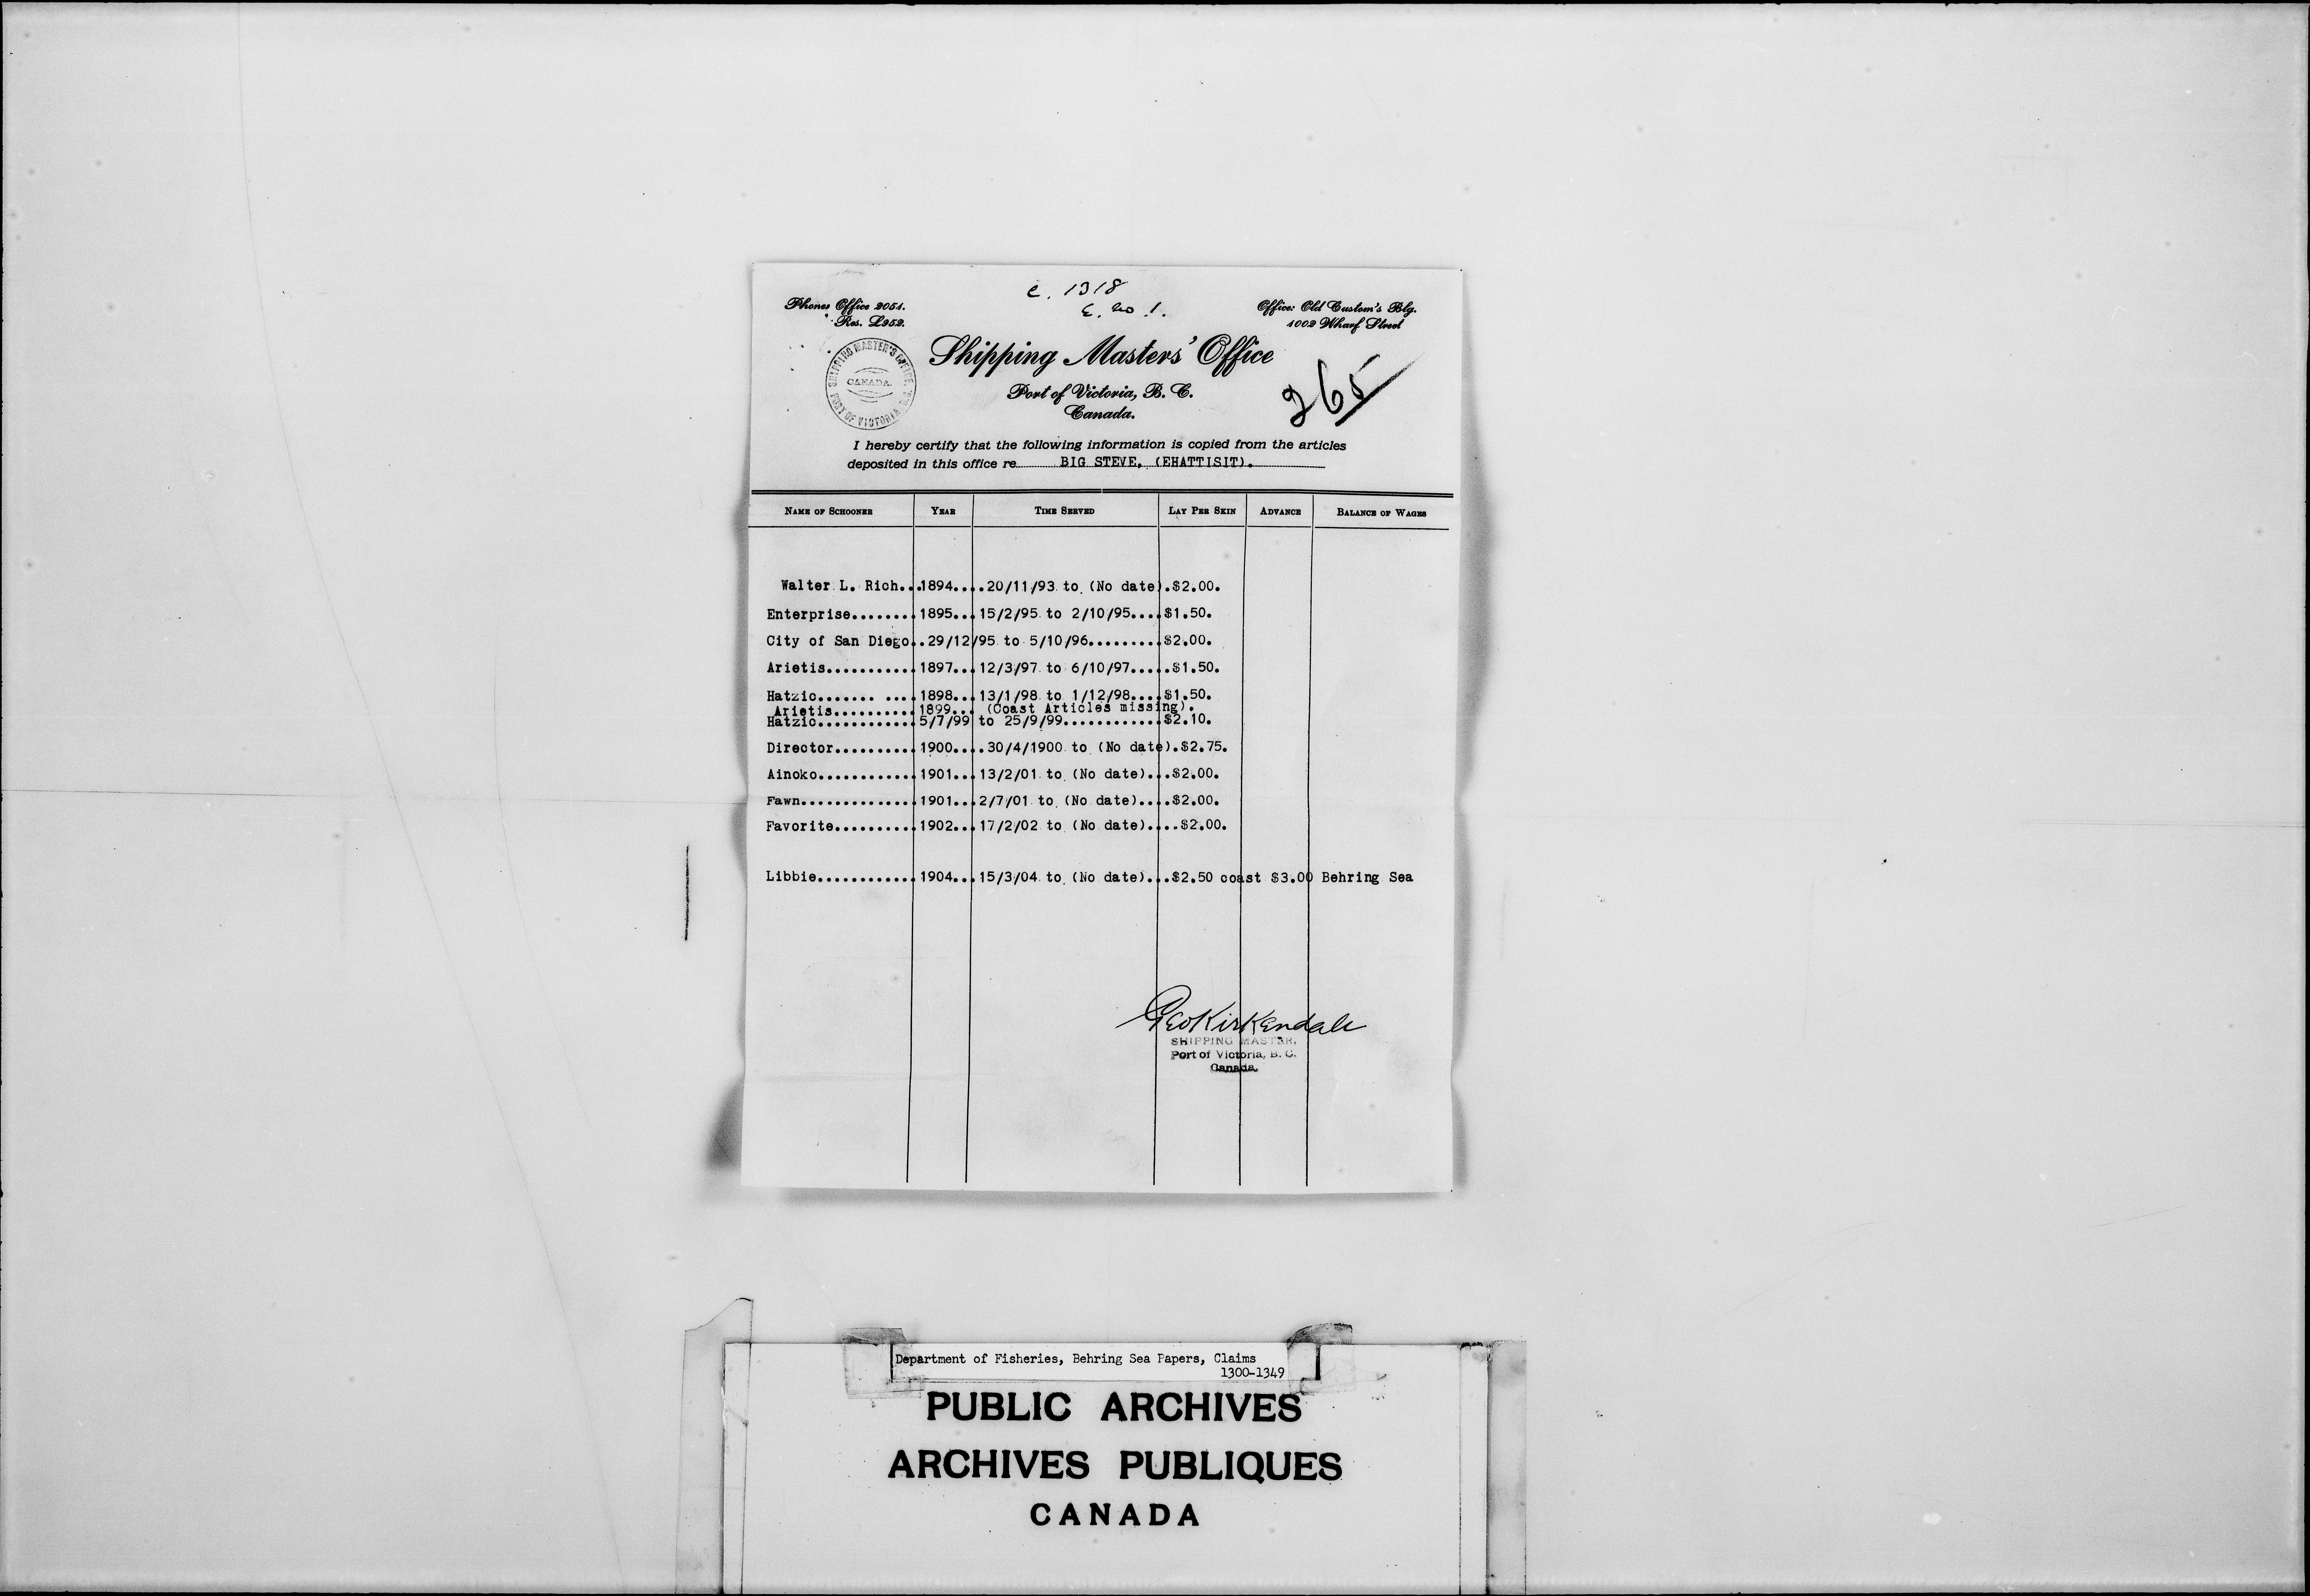 c. 1318
E. no 1.
Phones Office 2051.
Res. L952.
Office: Old Custom's Blg.
1002 Wharf Street
SHIPPING MASTER'S OFFICE,
CANADA.
PORT OF VICTORIA, B.C.
Shipping Masters' Office
Port of Victoria, B. C.
Canada.
265
I hereby certify that the following information is copied from the articles
deposited in this office re BIG STEVE, (EHATTISIT).
NAME OF SCHOONER YEAR TIME SERVED LAY PER SKIN ADVANCE BALANCE OF WAGES
Walter L. Rich...1894....20/11/93 to (No date).$2.00.
Enterprise........1895...15/2/95 to 2/10/95....$1.50.
City of San Diego..29/12/95 to 5/10/96.........$2.00.
Arietis...........1897...12/3/97 to 6/10/97.....$1.50.
Hatzic....... ....1898...13/1/98 to 1/12/98....$1.50.
Arietis..........1899... (Coast Articles missing).
Hatzic............5/7/99 to 25/9/99............$2.10.
Director..........1900....30/4/1900 to (No date).$2.75.
Ainoko............1901...13/2/01 to (No date)...$2.00.
Fawn..............1901...2/7/01 to (No date)....$2.00.
Favorite..........1902...17/2/02 to (No date)....$2.00.
Libbie............1904...15/3/04 to (No date)...$2.50 coast $3.00 Behring Sea
Geo Kirkendale
SHIPPING MASTER,
Port of Victoria, B. C.
Canada.
Department of Fisheries, Behring Sea Papers, Claims
1300-1349
PUBLIC ARCHIVES
ARCHIVES PUBLIQUES
CANADA